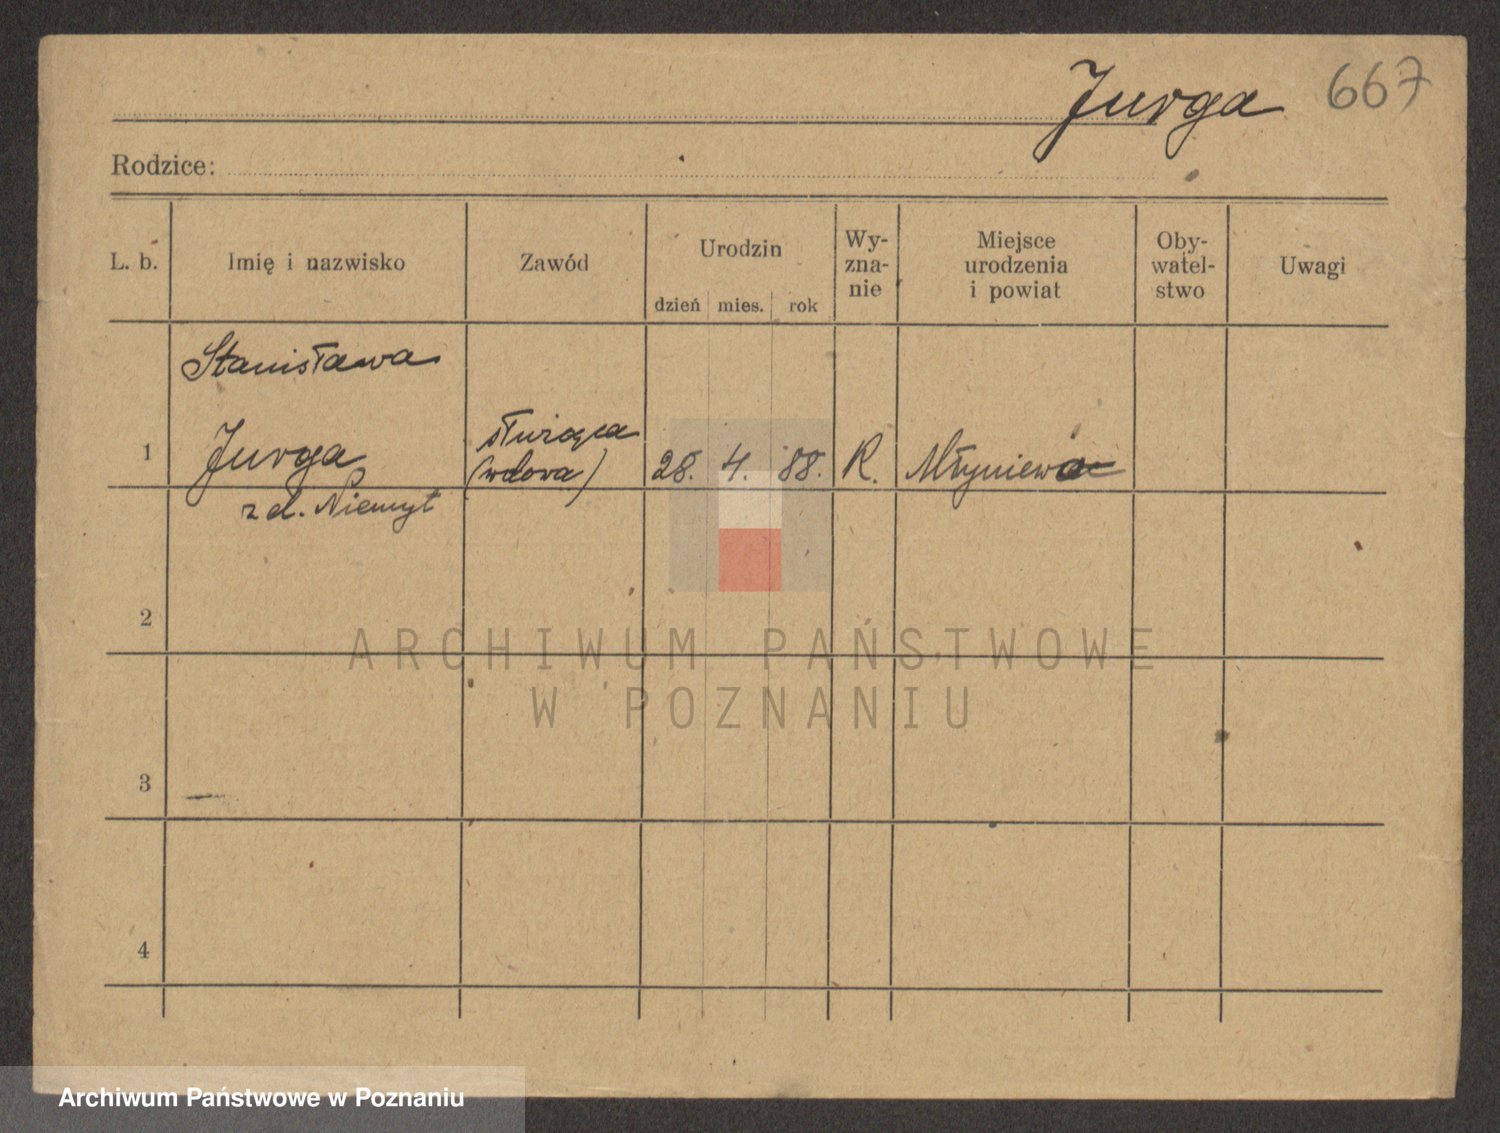 Jurga 667
Rodzice:
L. b. Imię i nazwisko Zawód Urodzin dzień mies. rok Wy-zna-nie Miejsce urodzenia i powiat Oby-watel-stwo Uwagi
Stanisława
1 Jurga służąca (wdowa) 28. 4. 88. R. Młyniewo
z d. Niemyt
2
3
4
ARCHIWUM PAŃSTWOWE
W POZNANIU
Archiwum Państwowe w Poznaniu